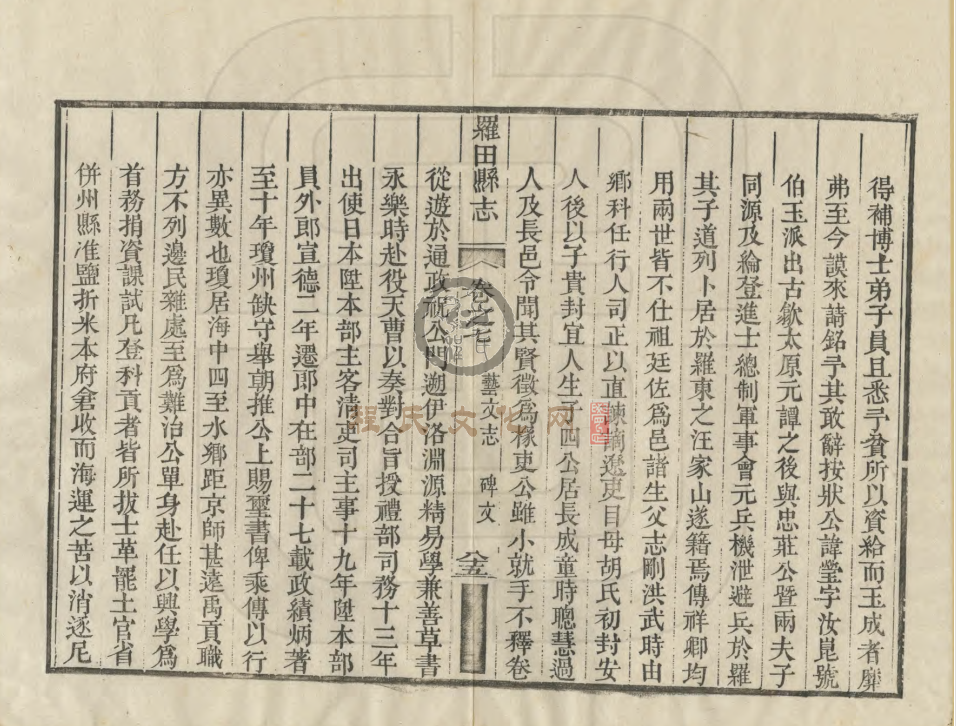 得補博士弟子員且悉予貧所以資給而玉成者靡
弗至今謨來請銘予其敢辭按狀公諱瑩字汝昆號
伯玉派出古歙太原元譚之後與忠莊公暨兩夫子
同源及綸登進士總制軍事會元兵機泄避兵於羅
其子道列卜居於羅東之汪家山遂籍焉傳祥卿均
用兩世皆不仕祖廷佐爲邑諸生父志剛洪武時由
鄉科任行人司正以直諫謫遼吏目母胡氏初封安
人後以子貴封宜人生子四公居長成童時聰慧過
人及長邑令聞其賢徵爲椽吏公雖小就手不釋卷
羅田縣志 卷之七 藝文志 碑文 八十五
從遊於通政祝公門遡伊洛淵源精易學兼善草書
永樂時赴役天曹以奏對合旨授禮部司務十三年
出使日本陞本部主客清吏司主事十九年陞本部
員外郎宣德二年遷郎中在部二十七載政績炳著
至十年瓊州缺守舉朝推公上賜璽書俾乘傳以行
亦異數也瓊居海中四至水鄉距京師甚遠禹貢職
方不列邊民雜處至爲難治公單身赴任以興學爲
首務捐資課試凡登科貢者皆所拔士革罷土官省
併州縣准鹽折米本府倉收而海運之苦以消逐尼
程氏文化网